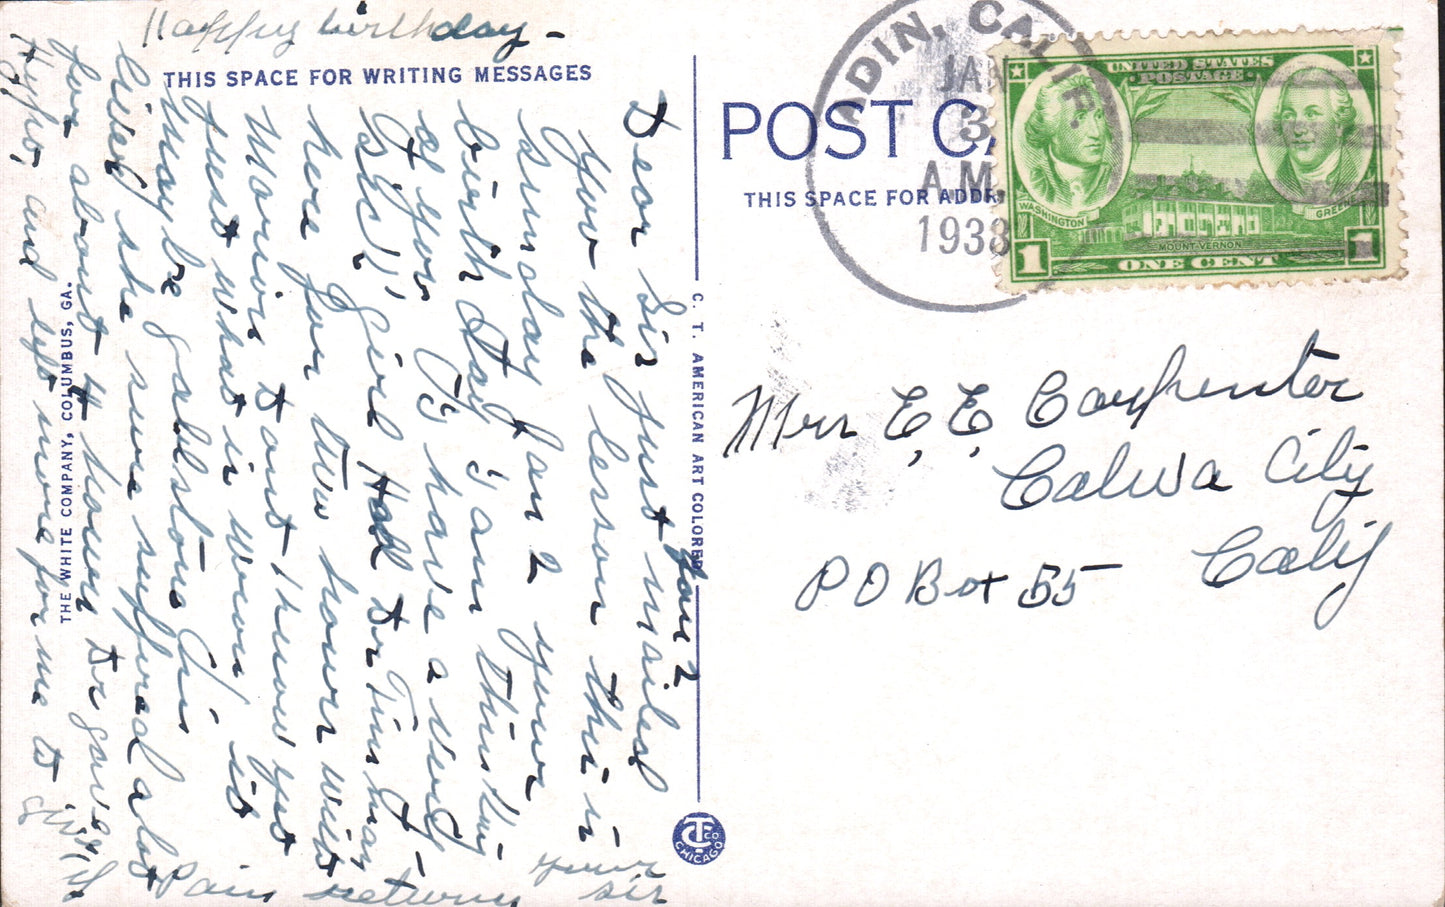 Happy birthday -
THIS SPACE FOR WRITING MESSAGES
Jan 2
Dear Sis just mailed
you the lesson this is
Sunday Jan 2 your
birth Day I am thinking
of you I have a very
sick Girl Had Dr Tinsman
here for two hours with
Marion dont know yet
just what is wrong, it
may be gallstones
liver she sure suffered a lot
for about 4 hours Dr gave her
Hypo, and left more for me to give if
Pain returns
your sis
THE WHITE COMPANY, COLUMBUS, GA.
C. T. AMERICAN ART COLORED
CT CO
CHICAGO
POST CA
THIS SPACE FOR ADDR
ADIN, CALIF.
JAN
3
A.M.
1938
UNITED STATES
POSTAGE
WASHINGTON
GREENE
MOUNT VERNON
1 ONE CENT 1
Mrs E, E, Carpenter
Calwa City
Calif
PO Box 55